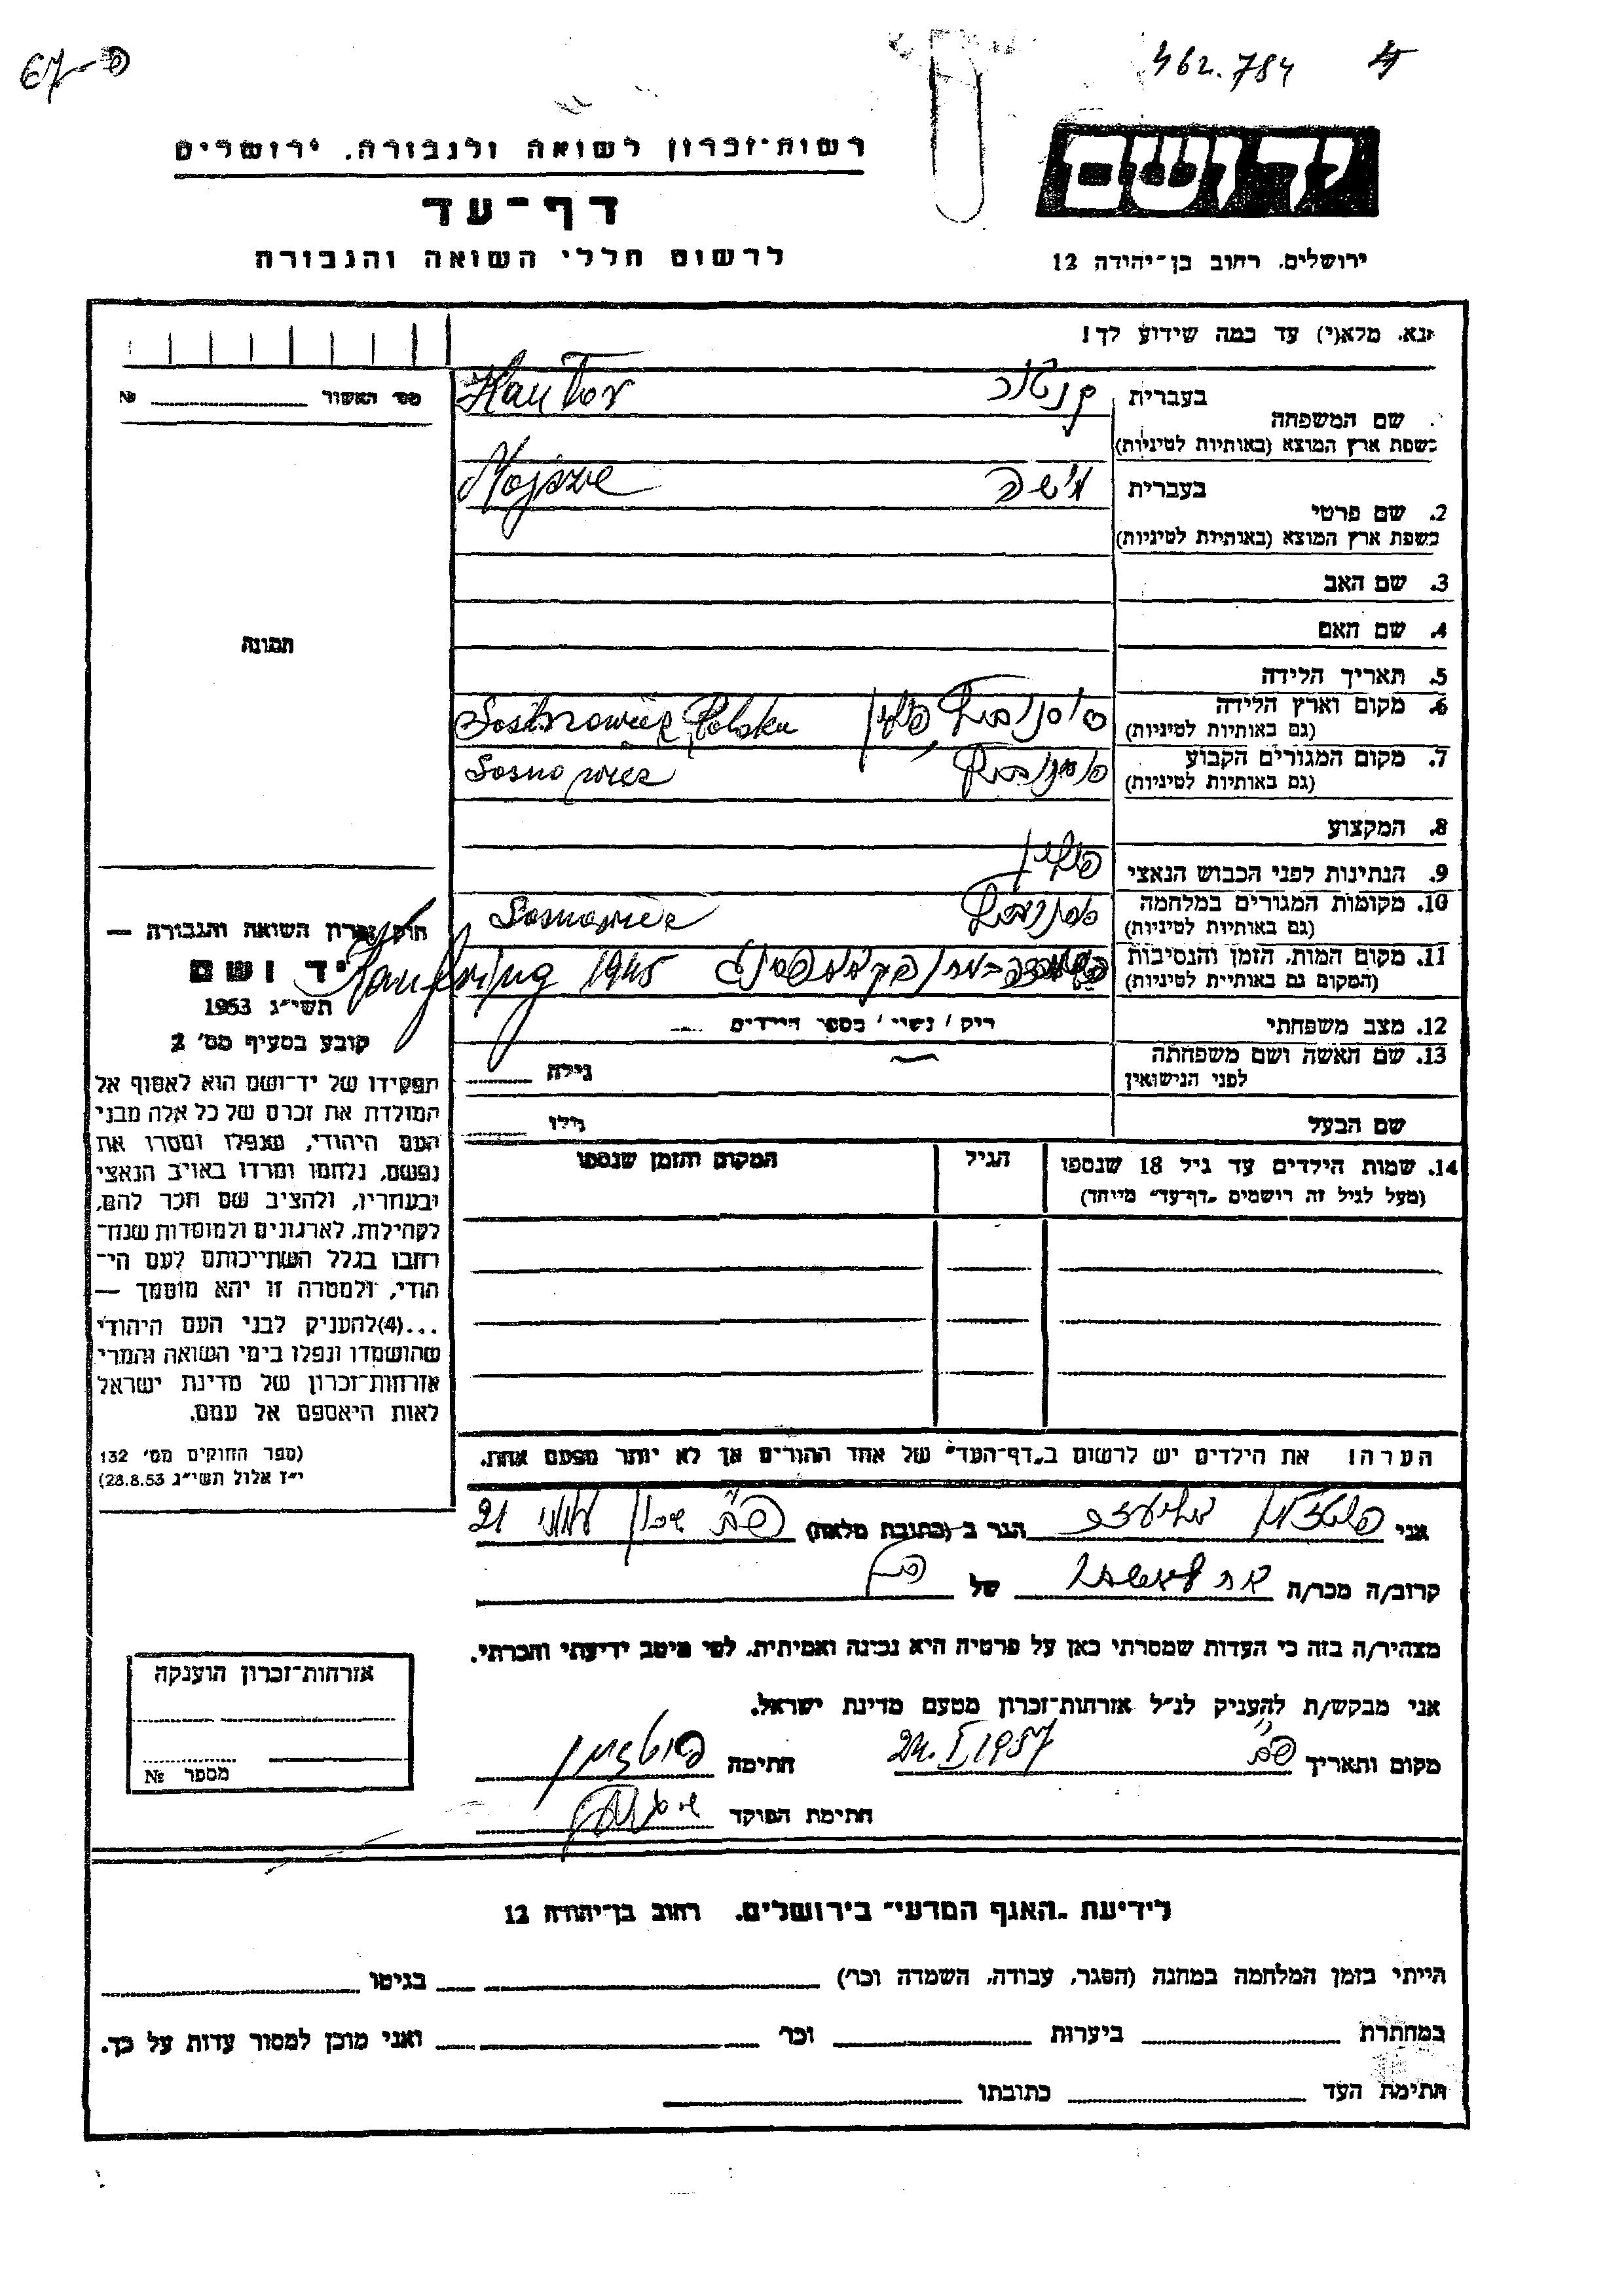 462.784
רשות־זכרון לשואה ולגבורה. ירושלים
יד ושם
דף־עד
לרשום חללי השואה והגבורה
ירושלים. רחוב בן־יהודה 12
נא. מלא(י) עד כמה שידוע לך!
מס׳ האשור № 
בעברית קנטור Kantor
שם המשפחה
בשפת ארץ המוצא (באותיות לטיניות)
בעברית Mojsze
2. שם פרטי
בשפת ארץ המוצא (באותיות לטיניות)
3. שם האב
4. שם האם
תמונה
5. תאריך הלידה
6. מקום וארץ הלידה פולין Polska
(גם באותיות לטיניות)
7. מקום המגורים הקבוע Sosnowiec
(גם באותיות לטיניות)
8. המקצוע
9. הנתינות לפני הכבוש הנאצי פולין
10. מקומות המגורים במלחמה Sosnowiec
(גם באותיות לטיניות)
11. מקום המות. הזמן והנסיבות Kaufering 1945
(המקום גם באותיות לטיניות)
12. מצב משפחתי רוק / נשוי / מספר הילדים
13. שם האשה ושם משפחתה גילה
לפני הנישואין
שם הבעל גילו
14. שמות הילדים עד גיל 18 שנספו הגיל המקום והזמן שנספו
(מעל לגיל זה רושמים „דף־עד״ מיוחד)
חוק זכרון השואה והגבורה —
יד ושם
תשי״ג 1953
קובע בסעיף מס׳ 2
תפקידו של יד־ושם הוא לאסוף אל
המולדת את זכרם של כל אלה מבני
העם היהודי, שנפלו ומסרו את
נפשם, נלחמו ומרדו באויב הנאצי
ובעוזריו, ולהציב שם וזכר להם,
לקהילות, לארגונים ולמוסדות שנח־
רבו בגלל השתייכותם לעם הי־
הודי, ולמטרה זו יהא מוסמך —
...(4)להעניק לבני העם היהודי
שהושמדו ונפלו בימי השואה והמרי
אזרחות־זכרון של מדינת ישראל
לאות היאספם אל עמם.
(ספר החוקים מס׳ 132
י״ז אלול תשי״ג 28.8.53)
הערה! את הילדים יש לרשום ב„דף־העד״ של אחד ההורים אך לא יותר מפעם אחת.
אני הגר ב (כתובת מלאה) 21
קרוב/ה מכר/ה של
מצהיר/ה בזה כי העדות שמסרתי כאן על פרטיה היא נכונה ואמיתית. לפי מיטב ידיעתי והכרתי.
אני מבקש/ת להעניק לנ״ל אזרחות־זכרון מטעם מדינת ישראל.
מקום ותאריך 24.I 1957 חתימה
חתימת הפוקד
אזרחות־זכרון הוענקה
מספר №
לידיעת „האגף המדעי״ בירושלים. רחוב בן־יהודה 12
הייתי בזמן המלחמה במחנה (הסגר, עבודה, השמדה וכו׳) בגיטו
במחתרת ביערות וכו׳ ואני מוכן למסור עדות על כך.
חתימת העד כתובתו